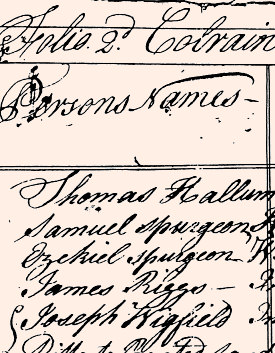 Folio 2d Colrain
Persons Names
Thomas Hallum
Samuel Spurgeon
Ezekiel Spurgeon
James Riggs
Joseph Wigfield